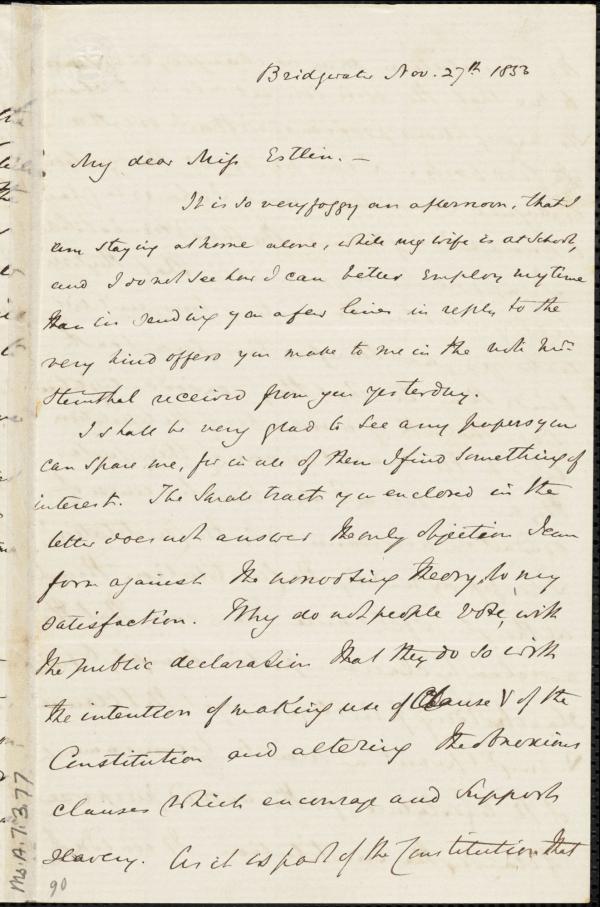 Bridgwater Nov. 27th 1853
My dear Miss Estlin. —
It is so very foggy an afternoon, that I
am staying at home alone, while my wife is at School,
and I do not see how I can better employ my time
than in sending you a few lines in reply to the
very kind offers you make to me in the note Mrs
Steinthal received from you yesterday.
I shall be very glad to see any papers you
can spare me, for in all of them I find something of
interest. The small tract you enclosed in the
letter does not answer the only objection I can
form against the nonvoting theory, to my
satisfaction. Why do not people vote, with
the public declaration that they do so with
the intention of making use of Clause V of the
Constitution and altering the obnoxious
clauses which encourage and support
slavery. As it is part of the Constitution that
Ms.A.7.3.77
90